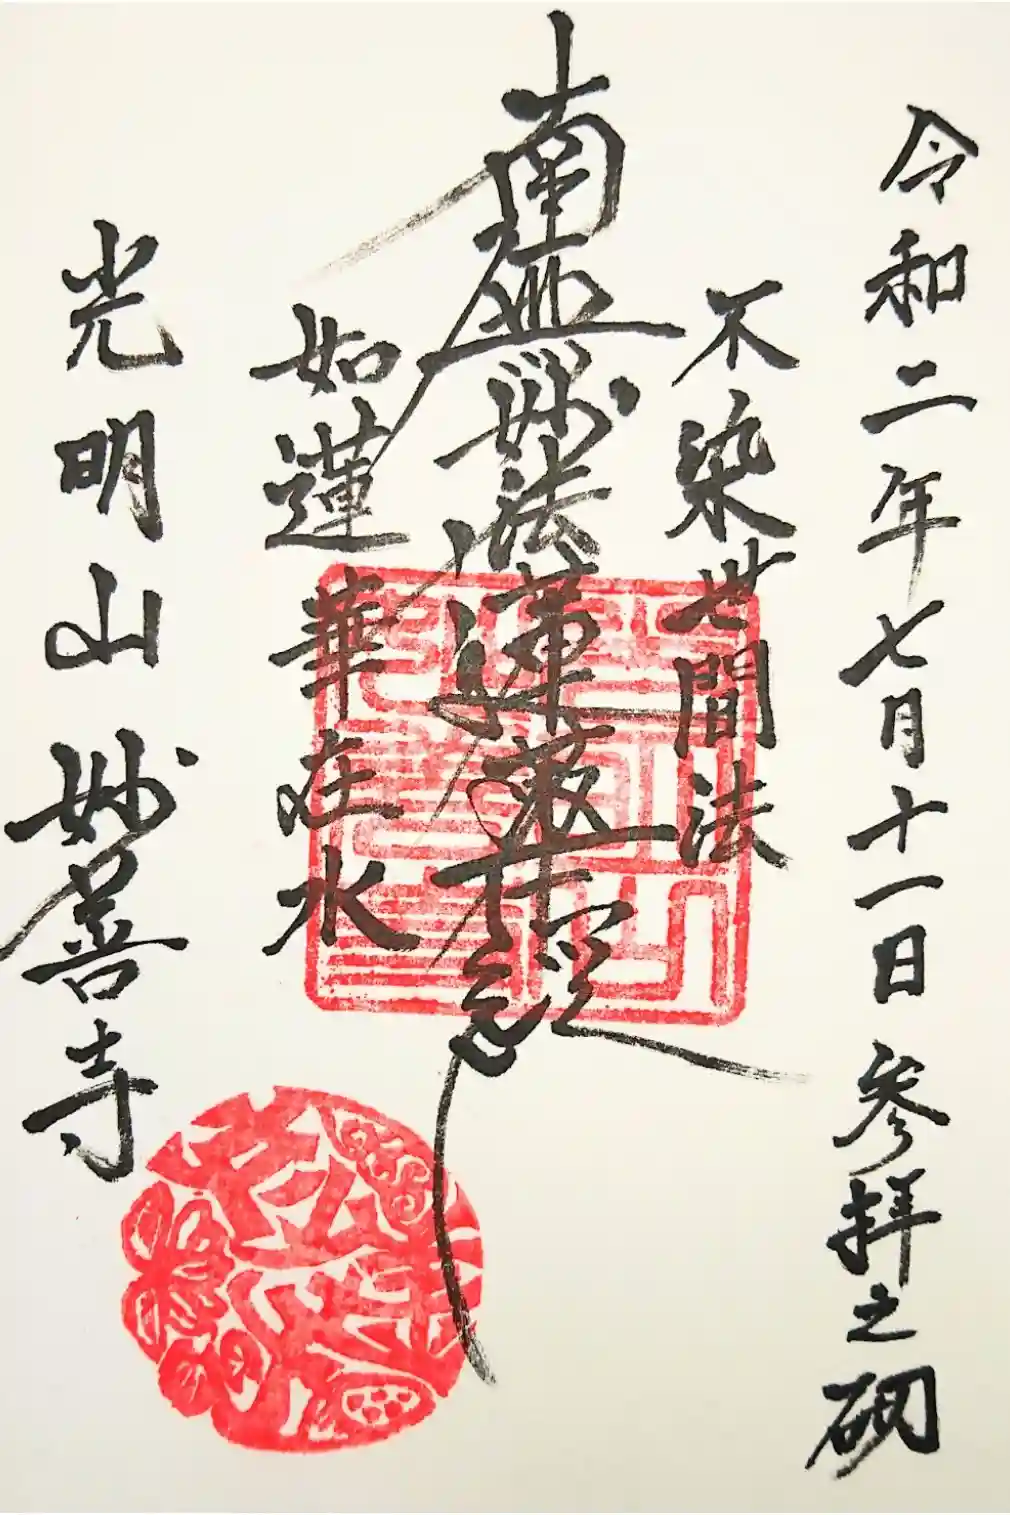 令和二年七月十一日 参拝之砌
不染世間法
南無妙法蓮華経
如蓮華在水
光明山 妙善寺